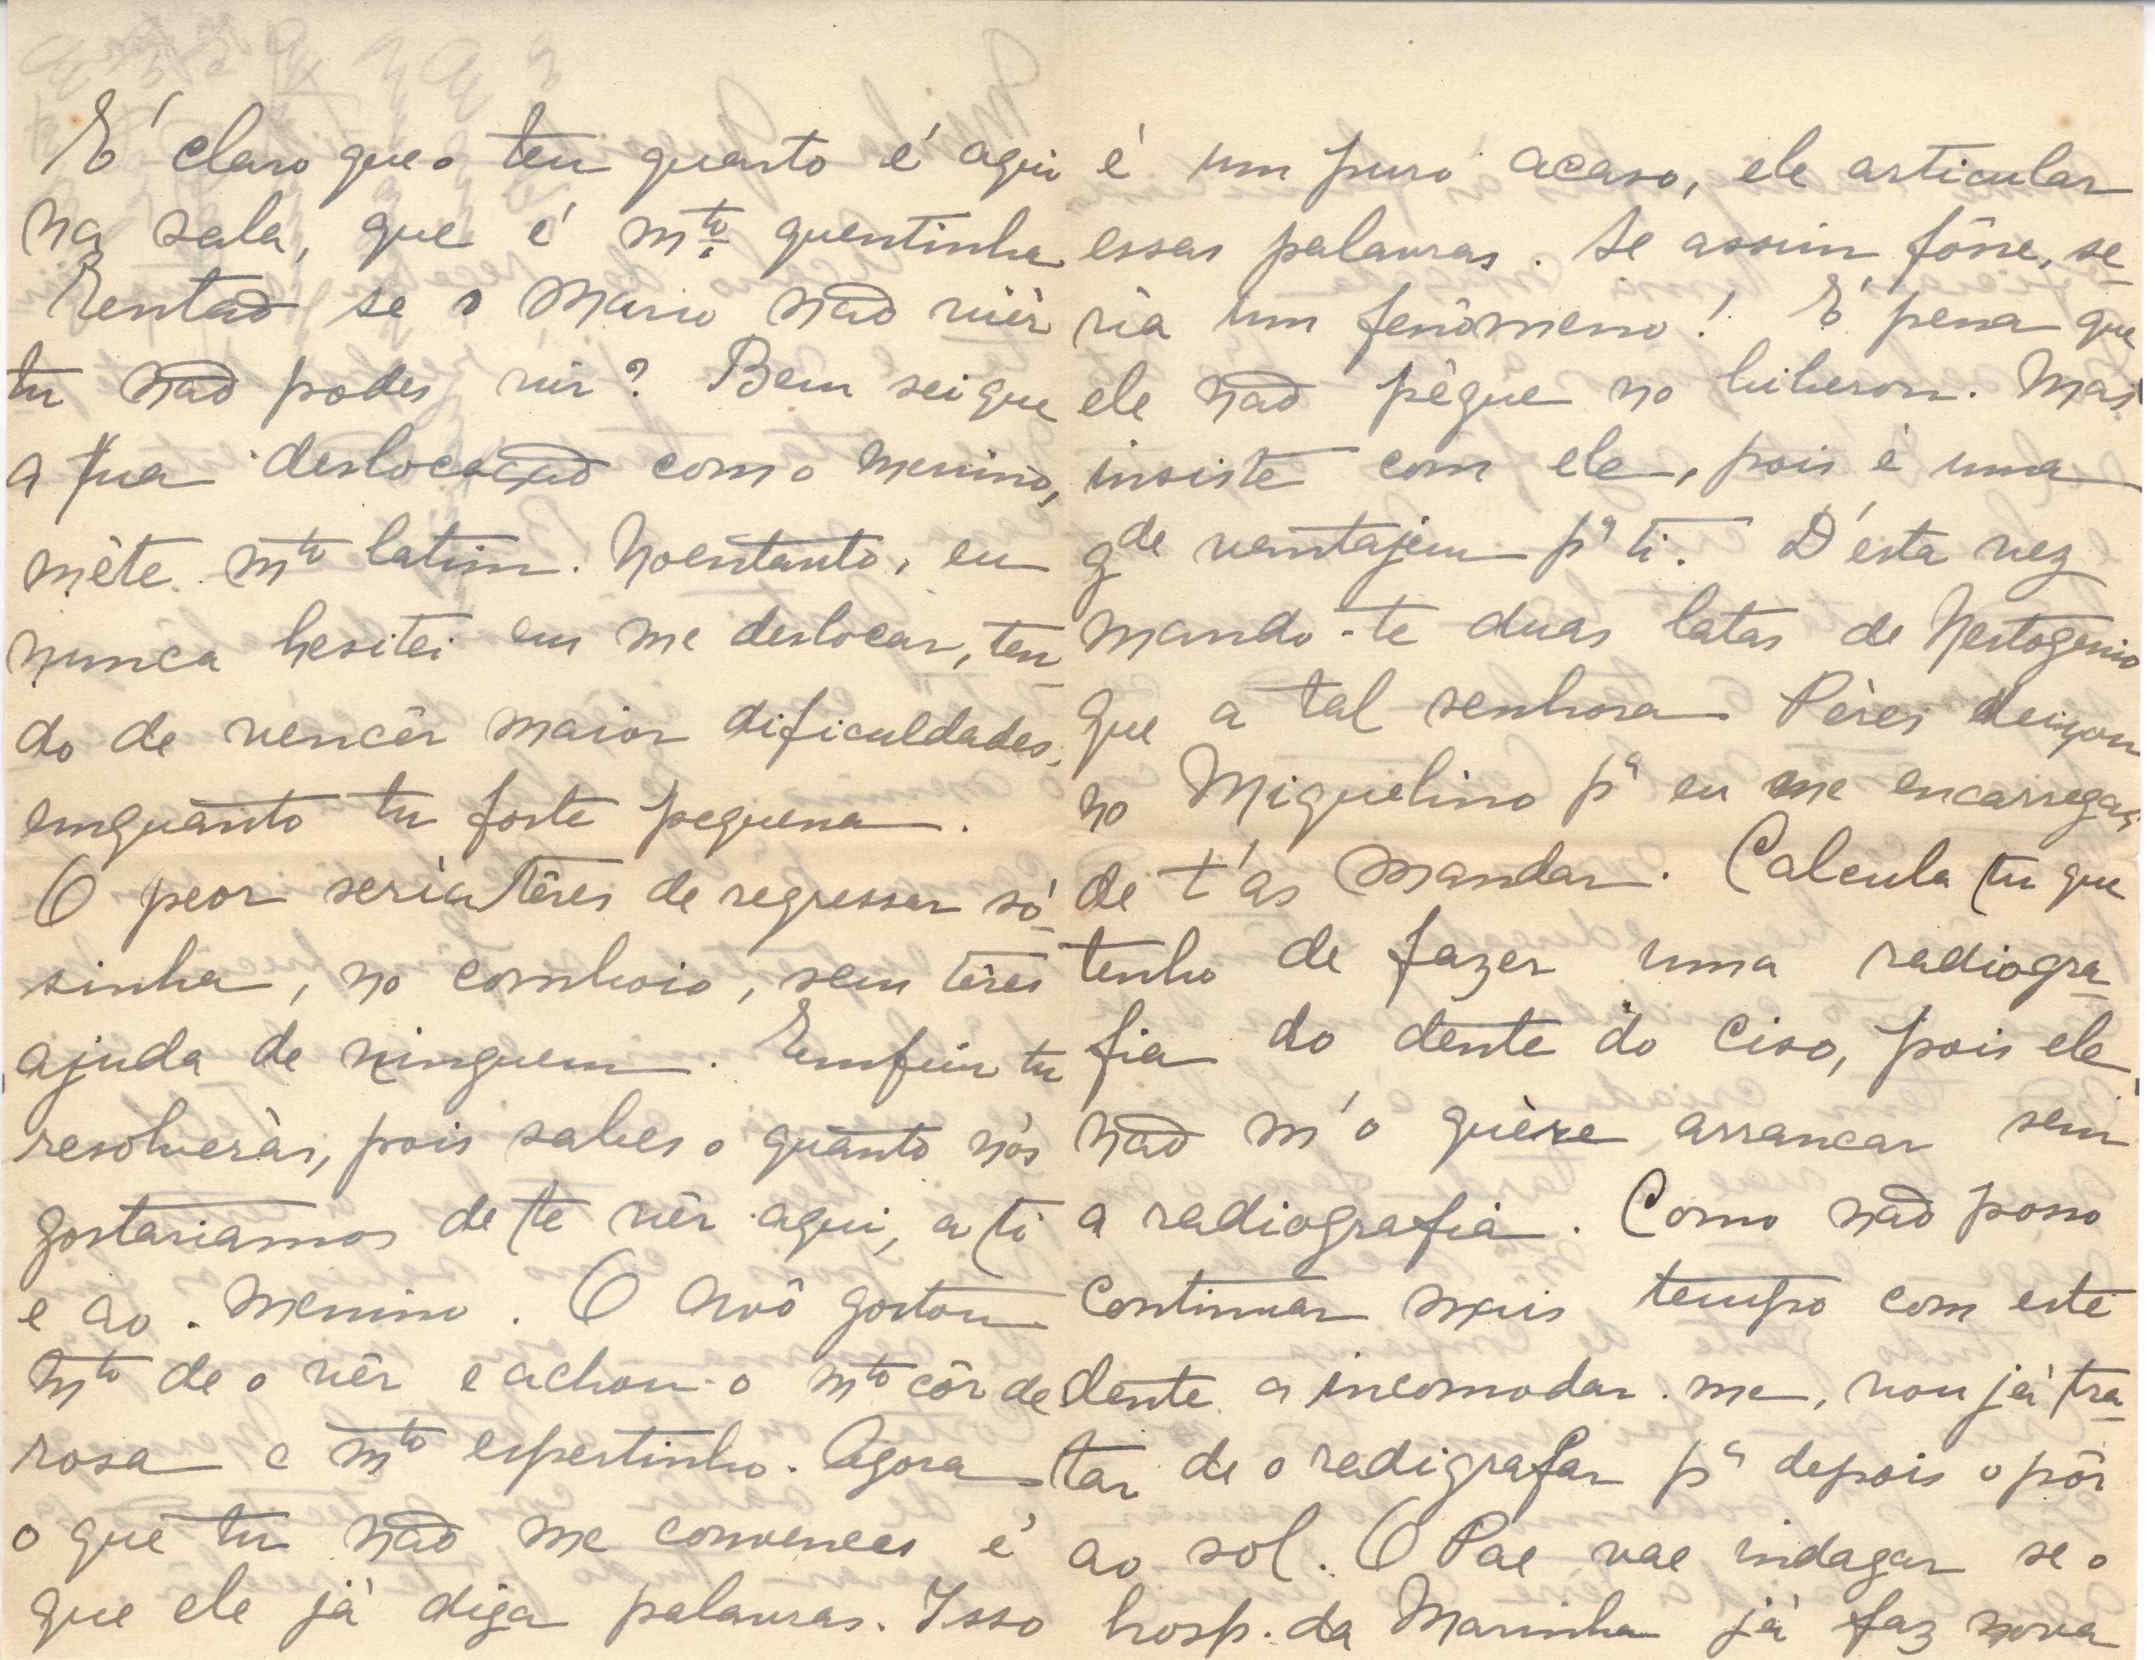 É claro que o teu quarto é aqui
na sala, que é mto. quentinha
Rentão se o Mario não viér
tu não podes vir? Bem sei que
a tua deslocação com o menino,
méte mto latim. Noentanto, eu
nunca hesitei em me deslocar, ten-
do de vencêr maior dificuldades,
emquanto tu foste pequena.
O peor seria têres de regressar só-
sinha, no comboio, sem têres
ajuda de ninguem. Emfim tu
resolverás, pois sabes o quanto nós
gostariamos de te vêr aqui, a ti
e ao menino. O Avô gostou
mto de o vêr e achou-o mto côr de
rosa e mto espertinho. Agora
o que tu não me convences é
que ele já diga palavras. Isso
é um puro acaso, ele articular
essas palavras. Se assim fôsse, se-
ria um fenómeno! É pena que
ele não pégue no biberon. Mas
insiste com ele, pois é uma
gde vantajem pa ti. D'esta vez
mando-te duas latas de Nestogenio
que a tal senhora Péres deixou
no Miguelino pa eu me encarregar
de t'as mandar. Calcula tu que
tenho de fazer uma radiogra-
fia do dente do ciso, pois ele
não m'o quére arrancar sem
a radiografia. Como não posso
continuar mais tempo com este
dente a incomodar-me, vou já tra-
tar de o radigrafar pa depois o pôr
ao sol. O Pae vae indagar se o
hosp. da Marinha já faz nova